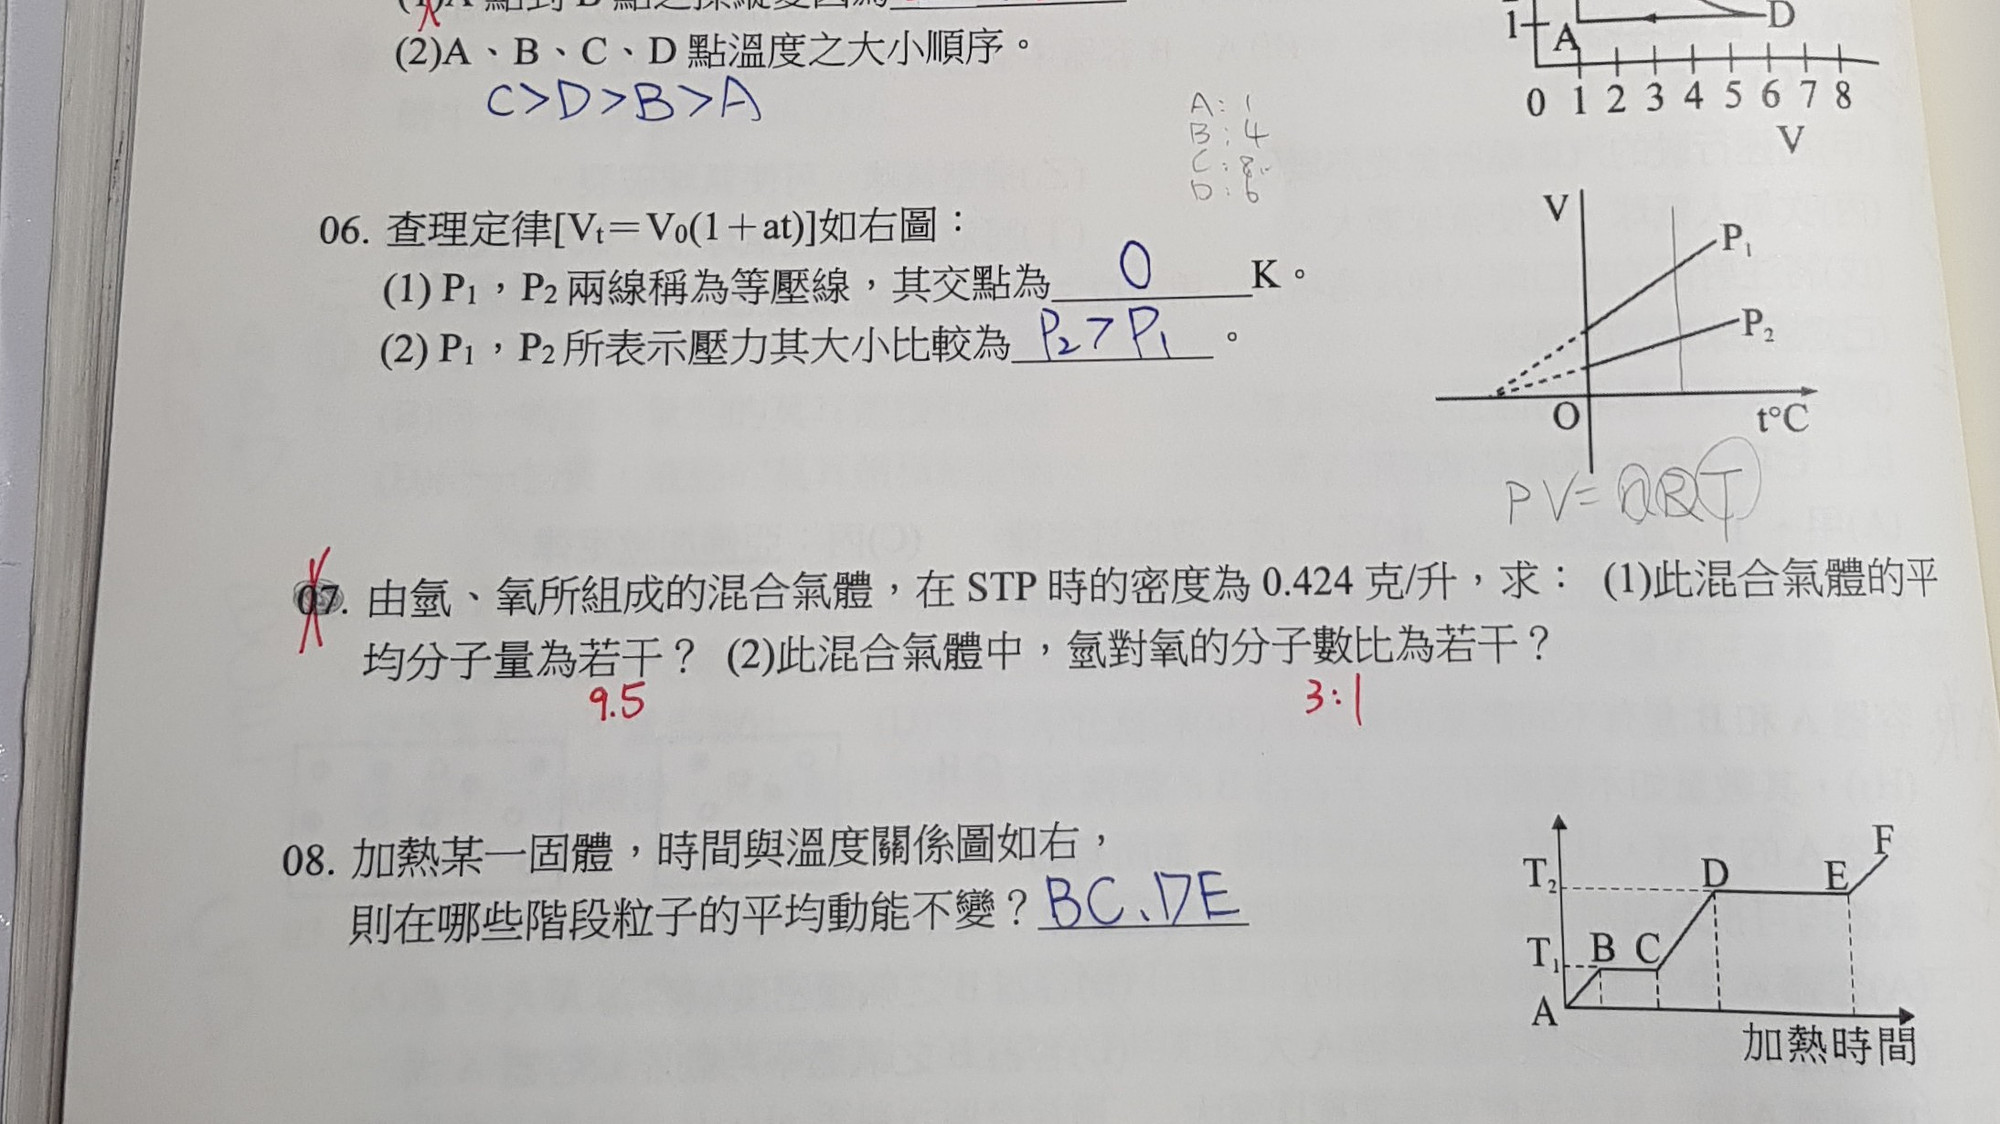 (2)A、B、C、D 點溫度之大小順序。
C>D>B>A
1 A D
0 1 2 3 4 5 6 7 8
V
A: 1
B: 4
C: 8
D: 6
06. 查理定律[Vt=V0(1+at)]如右圖：
(1) P1，P2 兩線稱為等壓線，其交點為 0 K。
(2) P1，P2 所表示壓力其大小比較為 P2>P1 。
V
P1
P2
O
t°C
PV=nRT
07. 由氫、氧所組成的混合氣體，在 STP 時的密度為 0.424 克/升，求： (1)此混合氣體的平
均分子量為若干？ (2)此混合氣體中，氫對氧的分子數比為若干？
9.5 3:1
08. 加熱某一固體，時間與溫度關係圖如右，
則在哪些階段粒子的平均動能不變？ BC、DE
F
T2 D E
T1 B C
A
加熱時間